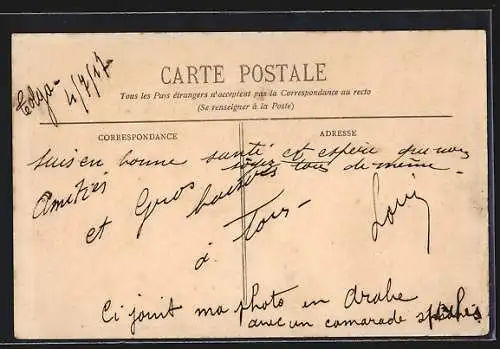 Tolga -
4/7/17
CARTE POSTALE
Tous les Pays étrangers n'acceptent pas la Correspondance au recto
(Se renseigner à la Poste)
CORRESPONDANCE
ADRESSE
suis en bonne santé et espère que vous
soyez tous de même -
Amitiés
et Gros baisers
à Tous -
Louis
Ci joint ma photo en Arabe
avec un camarade spahis